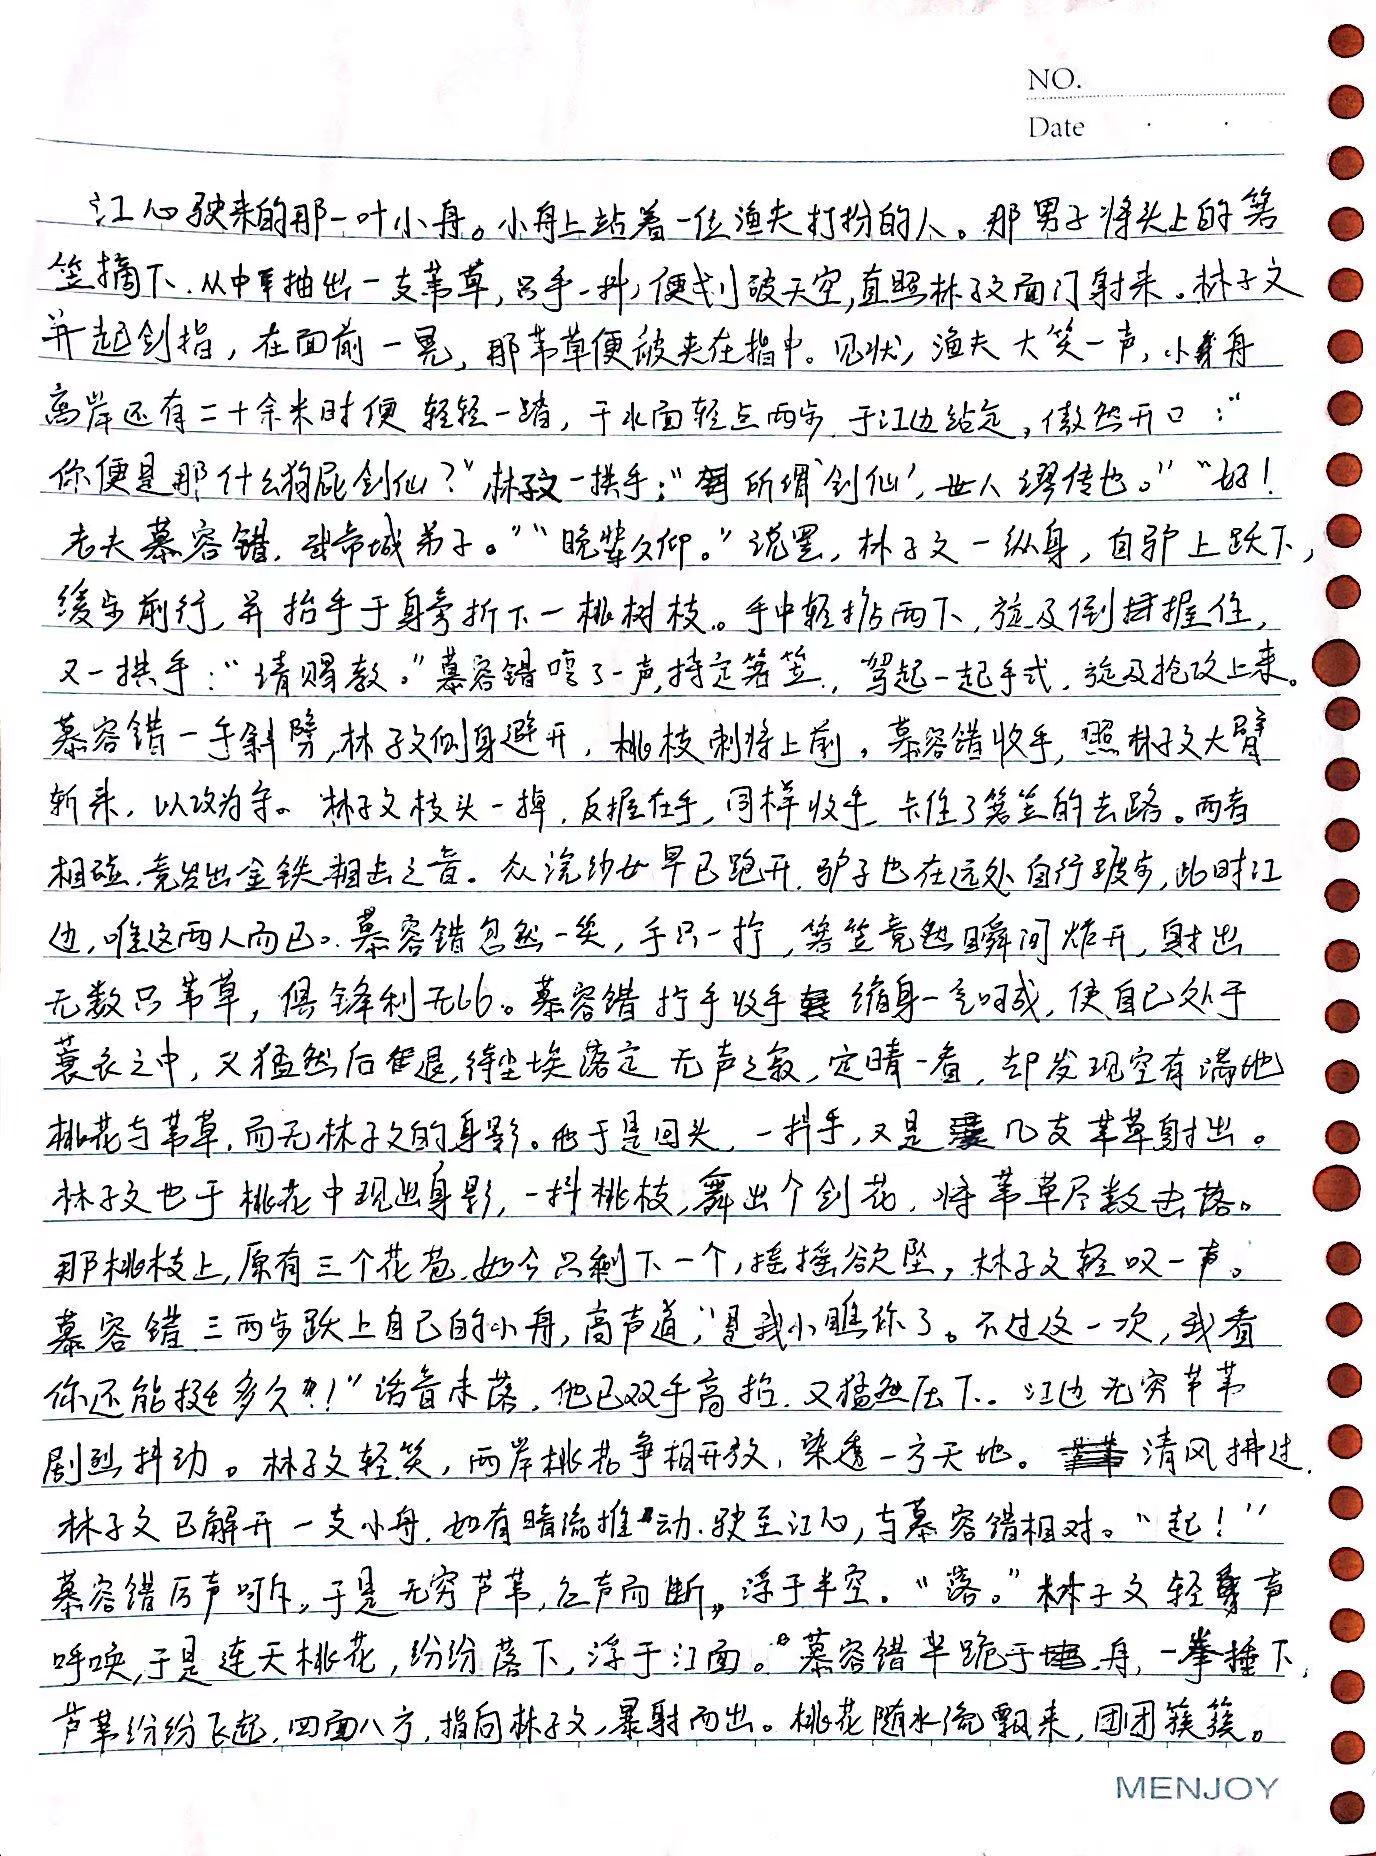 NO.
Date
江心驶来的那一叶小舟。小舟上站着一位渔夫打扮的人。那男子将头上的箬
笠摘下,从中抽出一支苇草,只手一抖,便划破天空,直照林子文面门射来。林子文
并起剑指,在面前一晃,那苇草便被夹在指中。见状,渔夫大笑一声,小舟
离岸还有二十余米时便轻轻一踏,于水面轻点两步,于江边站定,傲然开口:“
你便是那什么狗屁剑仙?”林子文一拱手:“所谓‘剑仙’,世人谬传也。”“好!
老夫慕容错,武帝城弟子。”“晚辈久仰。”说罢,林子文一纵身,自驴上跃下,
缓步前行,并抬手于身旁折下一桃树枝。手中轻掂两下,旋及倒握住,
又一拱手:“请赐教。”慕容错哼了一声,持定箬笠,驾起一起手式,旋及抢攻上来。
慕容错一手斜劈,林子文侧身避开,桃枝刺将上前。慕容错收手,照林子文大臂
斩来,以攻为守。林子文枝头一掉,反握在手,同样收手,卡住了箬笠的去路。两者
相碰,竟发出金铁相击之音。众浣纱女早已跑开,驴子也在远处自行踱步,此时江
边,唯这两人而已。慕容错忽然一笑,手只一拧,箬笠竟然瞬间炸开,射出
无数只苇草,俱锋利无比。慕容错拧手收手缩身一气呵成,使自己处于
蓑衣之中,又猛然后退,待尘埃落定,无声之寂,定睛一看,却发现空有满地
桃花与苇草,而无林子文的身影。他于是回头,一抖手,又是几支苇草射出。
林子文也于桃花中现出身影,一抖桃枝,舞出个剑花,将苇草尽数击落。
那桃枝上,原有三个花苞,如今只剩下一个,摇摇欲坠,林子文轻叹一声。
慕容错三两步跃上自己的小舟,高声道,“是我小瞧你了。不过这一次,我看
你还能挺多久!”话音未落,他已双手高抬,又猛然压下。江边无穷芦苇
剧烈抖动。林子文轻笑,两岸桃花争相开放,染透一方天地。清风拂过,
林子文已解开一支小舟,如有暗流推动,驶至江心,与慕容错相对。“起!”
慕容错厉声呵斥,于是无穷芦苇,应声而断,浮于半空。“落。”林子文轻声
呼唤,于是连天桃花,纷纷落下,浮于江面。慕容错半跪于舟,一拳捶下,
芦苇纷纷飞起,四面八方,指向林子文,暴射而出。桃花随水流飘来,团团簇簇。
MENJOY